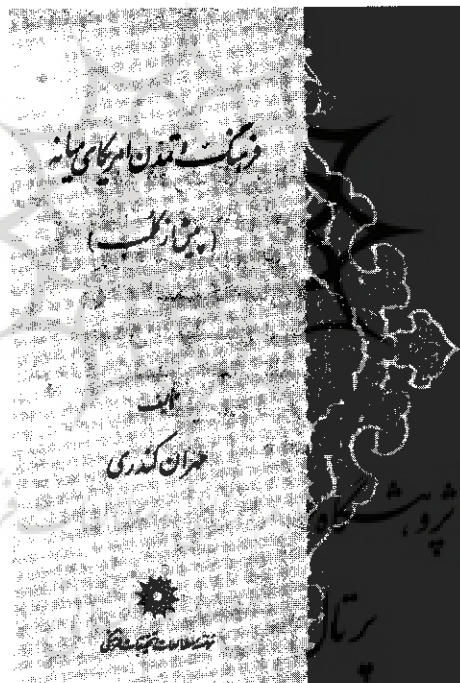 فرهنگ و تمدن امریکای میانه
(پیش از کلمب)
تألیف
مهران کندری
مؤسسه مطالعات و تحقیقات فرهنگی
پژوهشگاه
پرتال